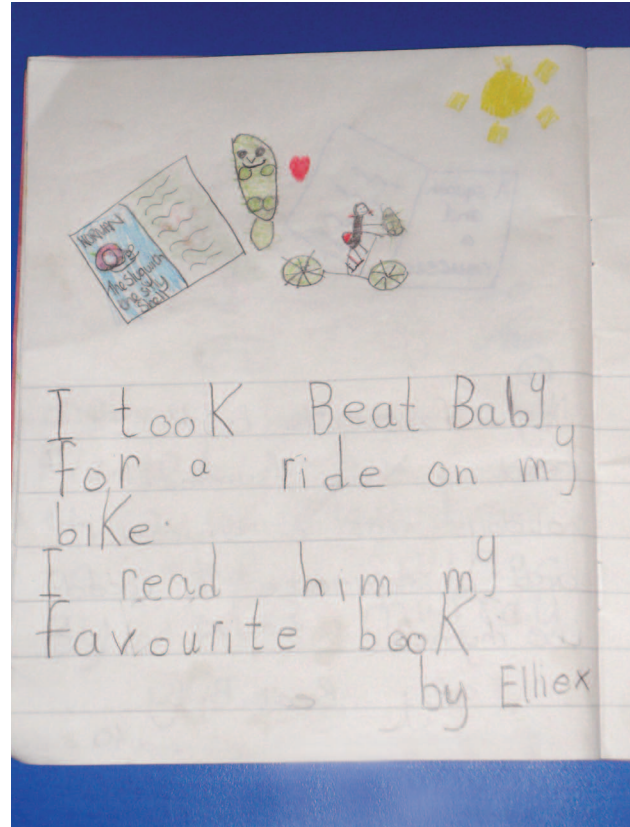 NORMAN
the slug with
the silly
shell
I took Beat Baby
for a ride on my
bike.
I read him my
favourite book
by Ellie x